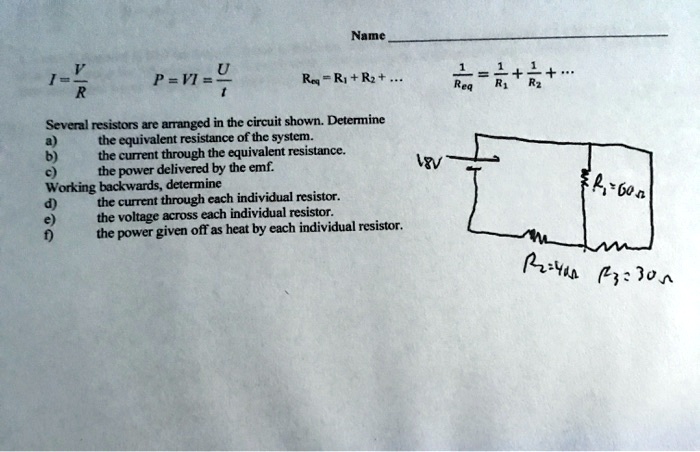 Name
I = V/R P = VI = U/t Req = R1 + R2 + ... 1/Req = 1/R1 + 1/R2 + ...
Several resistors are arranged in the circuit shown. Determine
a) the equivalent resistance of the system.
b) the current through the equivalent resistance.
c) the power delivered by the emf.
Working backwards, determine
d) the current through each individual resistor.
e) the voltage across each individual resistor.
f) the power given off as heat by each individual resistor.
18V
R1=60Ω
R2=40Ω R3=30Ω